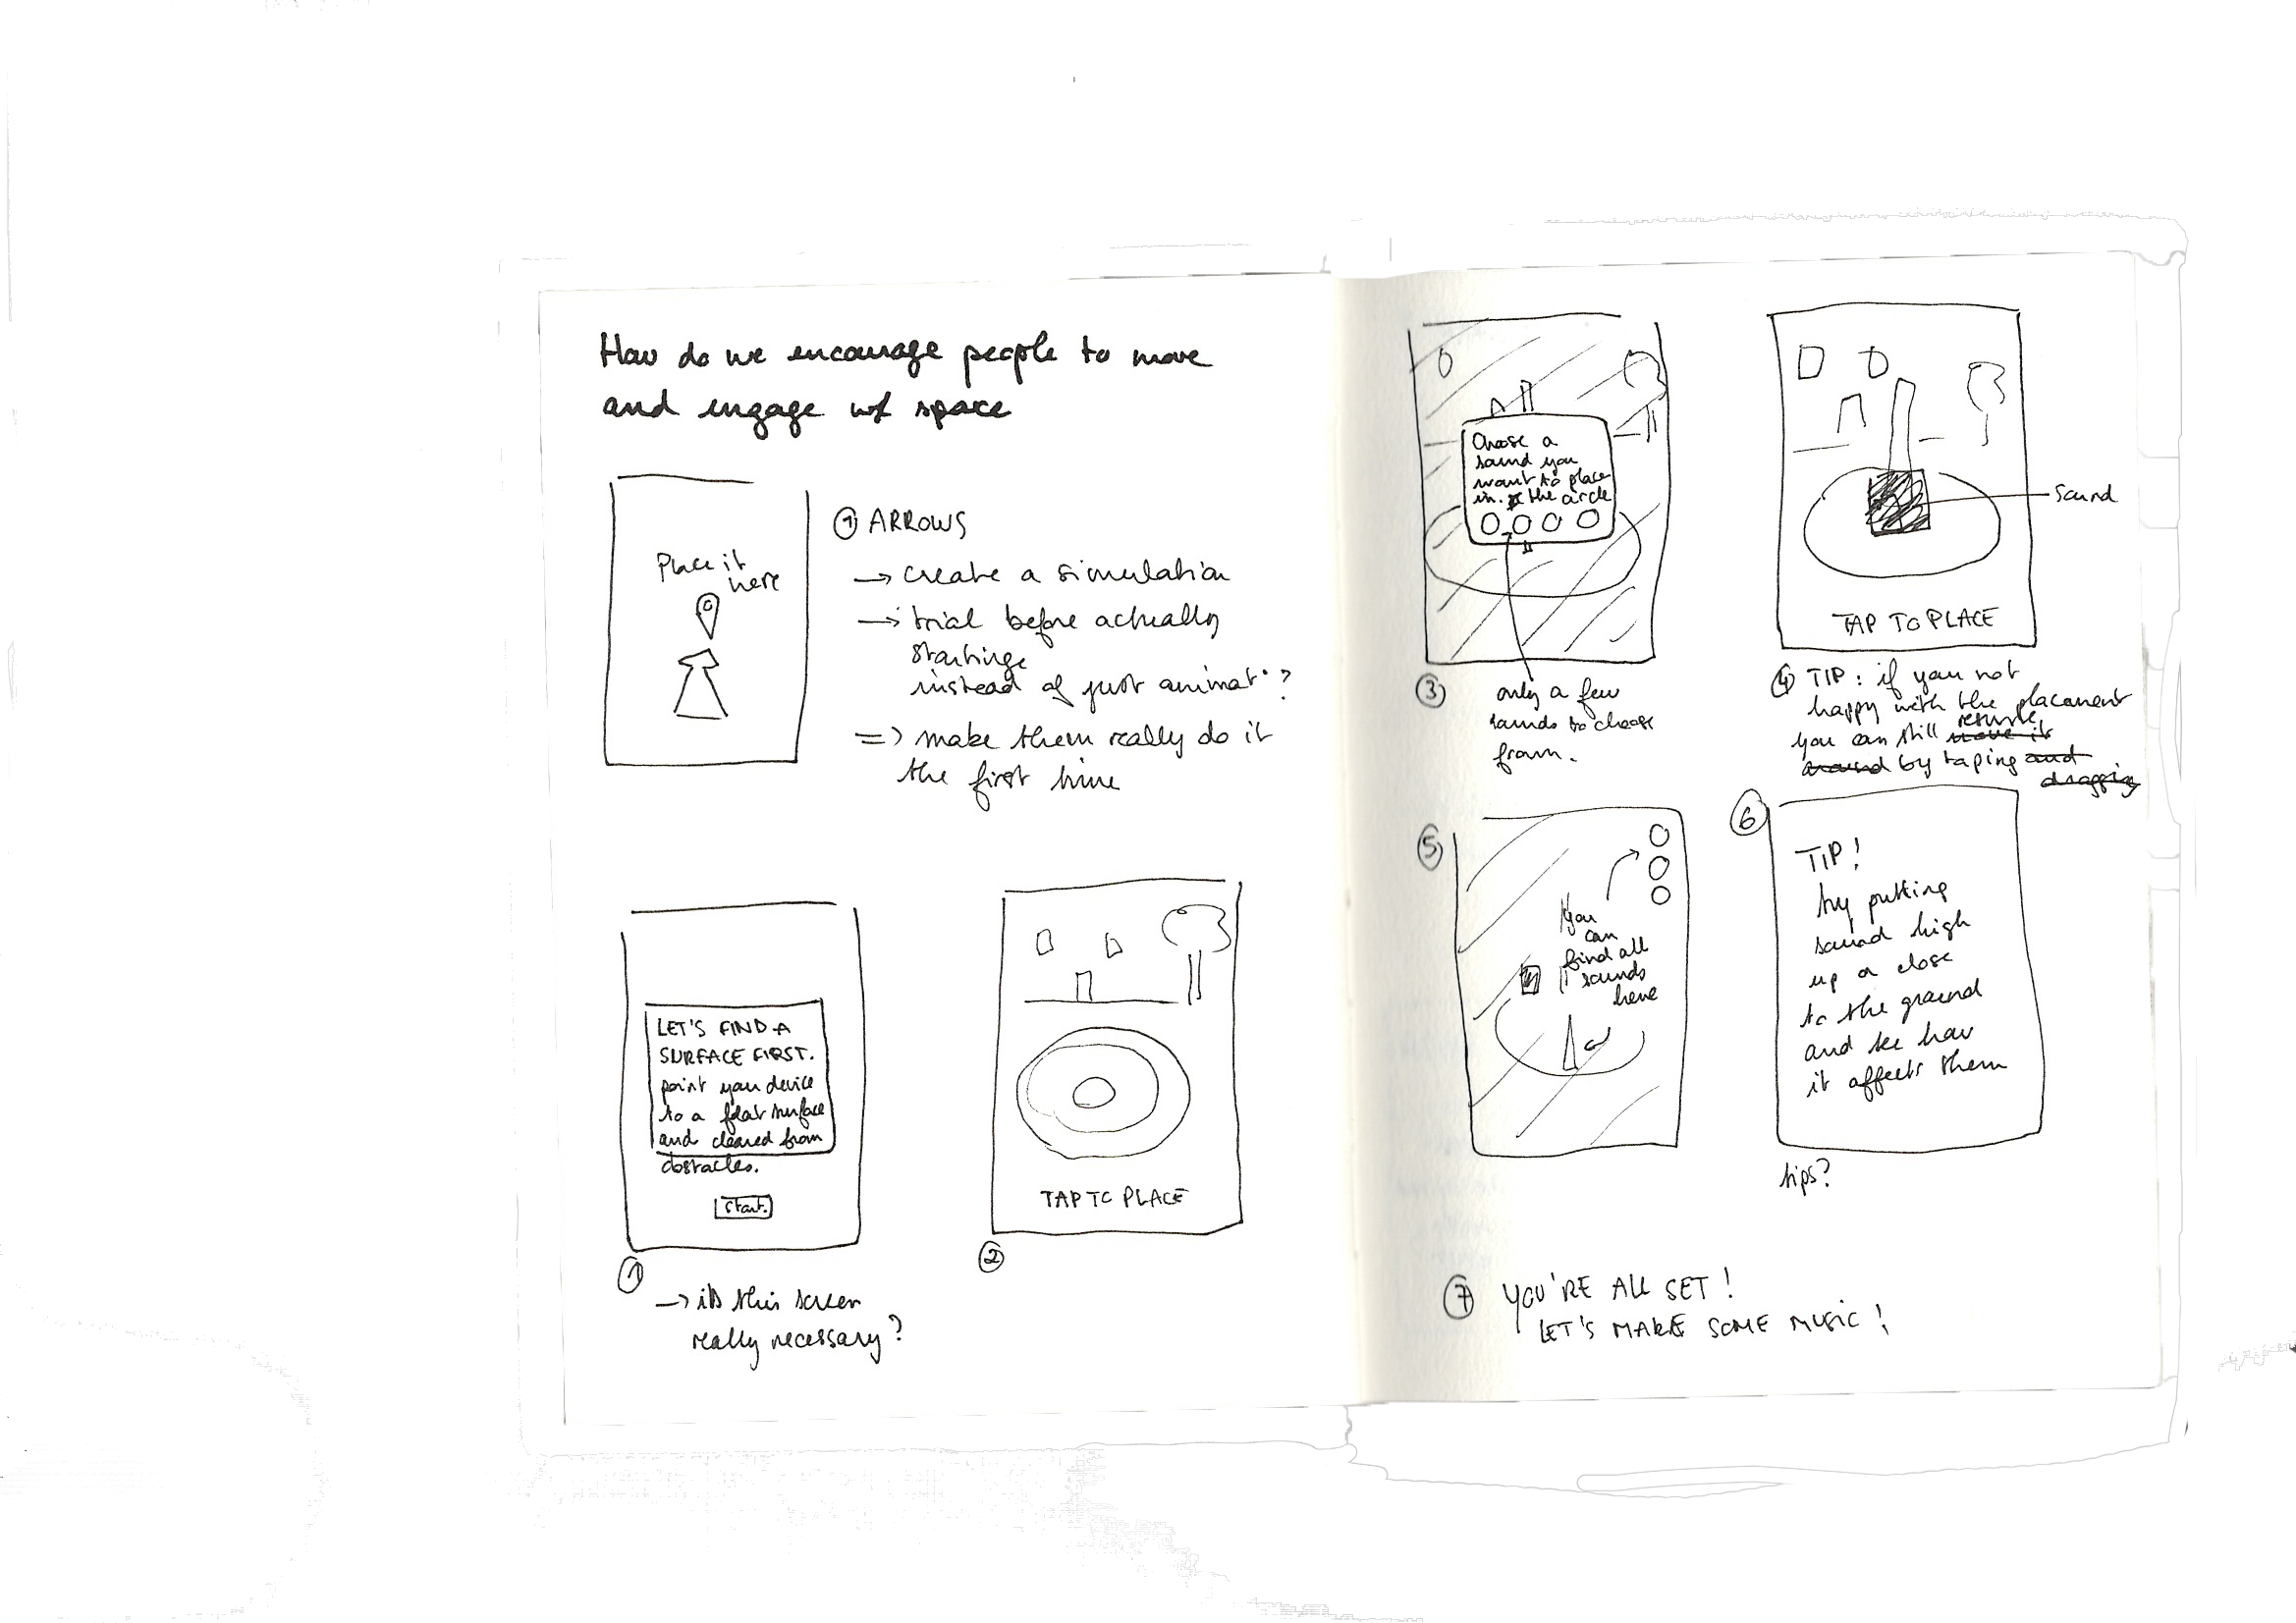 How do we encourage people to move
and engage w/ space
Place it
here
① ARROWS
→ create a simulation
→ trial before actually
starting
instead of just animat°?
=> make them really do it
the first time
LET'S FIND A
SURFACE FIRST.
point your device
to a flat surface
and cleared from
obstacles.
Start.
①
→ is this screen
really necessary?
TAP TO PLACE
②
Choose a
sound you
want to place
in the circle
③
only a few
sounds to choose
from.
sound
TAP TO PLACE
④ TIP: if you not
happy with the placement
you can still move it
around by taping and
dragging
⑤
You
can
find all
sounds
here
⑥
TIP!
try putting
sound high
up or close
to the ground
and see how
it affects them
tips?
⑦ YOU'RE ALL SET!
LET'S MAKE SOME MUSIC!